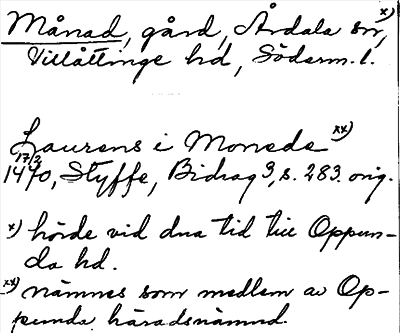 Månad, gård, Årdala sn, x)
Villåttinge hd, Söderm. l.
Laurens i Moneda xx)
17/3 1440, Styffe, Bidrag 3, s. 283. orig.
x) hörde vid dna tid till Oppun-
da hd.
xx) nämnes som medlem av Op-
punda häradsnämnd.